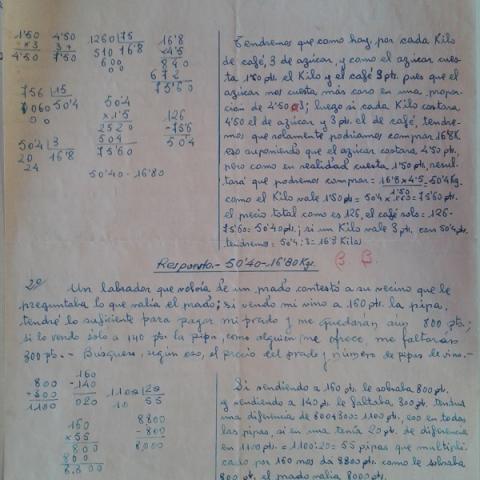 1'50
× 3
4'50
4'50
3+
7'50
1260 | 75
510 16'8
600
00
16'8
×4'5
840
672
75'60
756 | 15
060 50'4
00
50'4
×1'5
2520
504
75'60
126
-756
504
504 | 3
20 16'8
24
50'40 - 16'80
Tendremos que como hay, por cada Kilo
de café, 3 de azúcar, y como el azúcar cues-
ta 1'50 pts. el Kilo y el café 3 pts. pues que el
azúcar nos cuesta más caro en una propor-
ción de 4'50 a 3; luego si cada Kilo costara
4'50 el de azúcar y 3 pts. el de café, tendre-
mos que solamente podríamos comprar 16'8K
eso suponiendo que el azúcar costara 4'50 pts.
pero como en realidad cuesta 1'50 pts, resul-
tará que podremos comprar = 16'8 × 4'5 / 1'50 = 50'4 Kg.
como el Kilo vale 1'50 pts = 50'4 × 1'50 = 75'60 pts.
el precio total como es 126, el café solo = 126-
75'60 = 50'40 pts; si un Kilo vale 3 pts. con 50'4 pts.
tendremos = 50'4 : 3 = 16'8 Kilos
Respuesta.- 50'40 - 16'80 Kg. B. B.
2º Un labrador que volvía de un prado contestó a su vecino que le
preguntaba lo que valía el prado; si vendo mi vino a 160 pts. la pipa,
tendré lo suficiente para pagar mi prado y me quedarán aún 800 pts;
si lo vendo sólo a 140 pts. la pipa, como alguien me ofrece, me faltarán
300 pts. - Búsquese, según eso, el precio del prado y número de pipas de vino.-
800
-300
1100
160
-140
020
1100 | 20
10 55
160
×55
800
800
8.800
8800
-800
8000
Si vendiendo a 160 pts. le sobraba 800 pts,
y vendiendo a 140 pts. le faltaba 300 pts. tendrá
una diferencia de 800+300 = 1100 pts, eso en todas
las pipas, si en una tenía 20 pts. de diferencia
en 1100 pts. = 1100:20 = 55 pipas que multipli-
cado por 160 nos da 8800 pts. como le sobraba
800 pts. el prado valía 8000 pts.